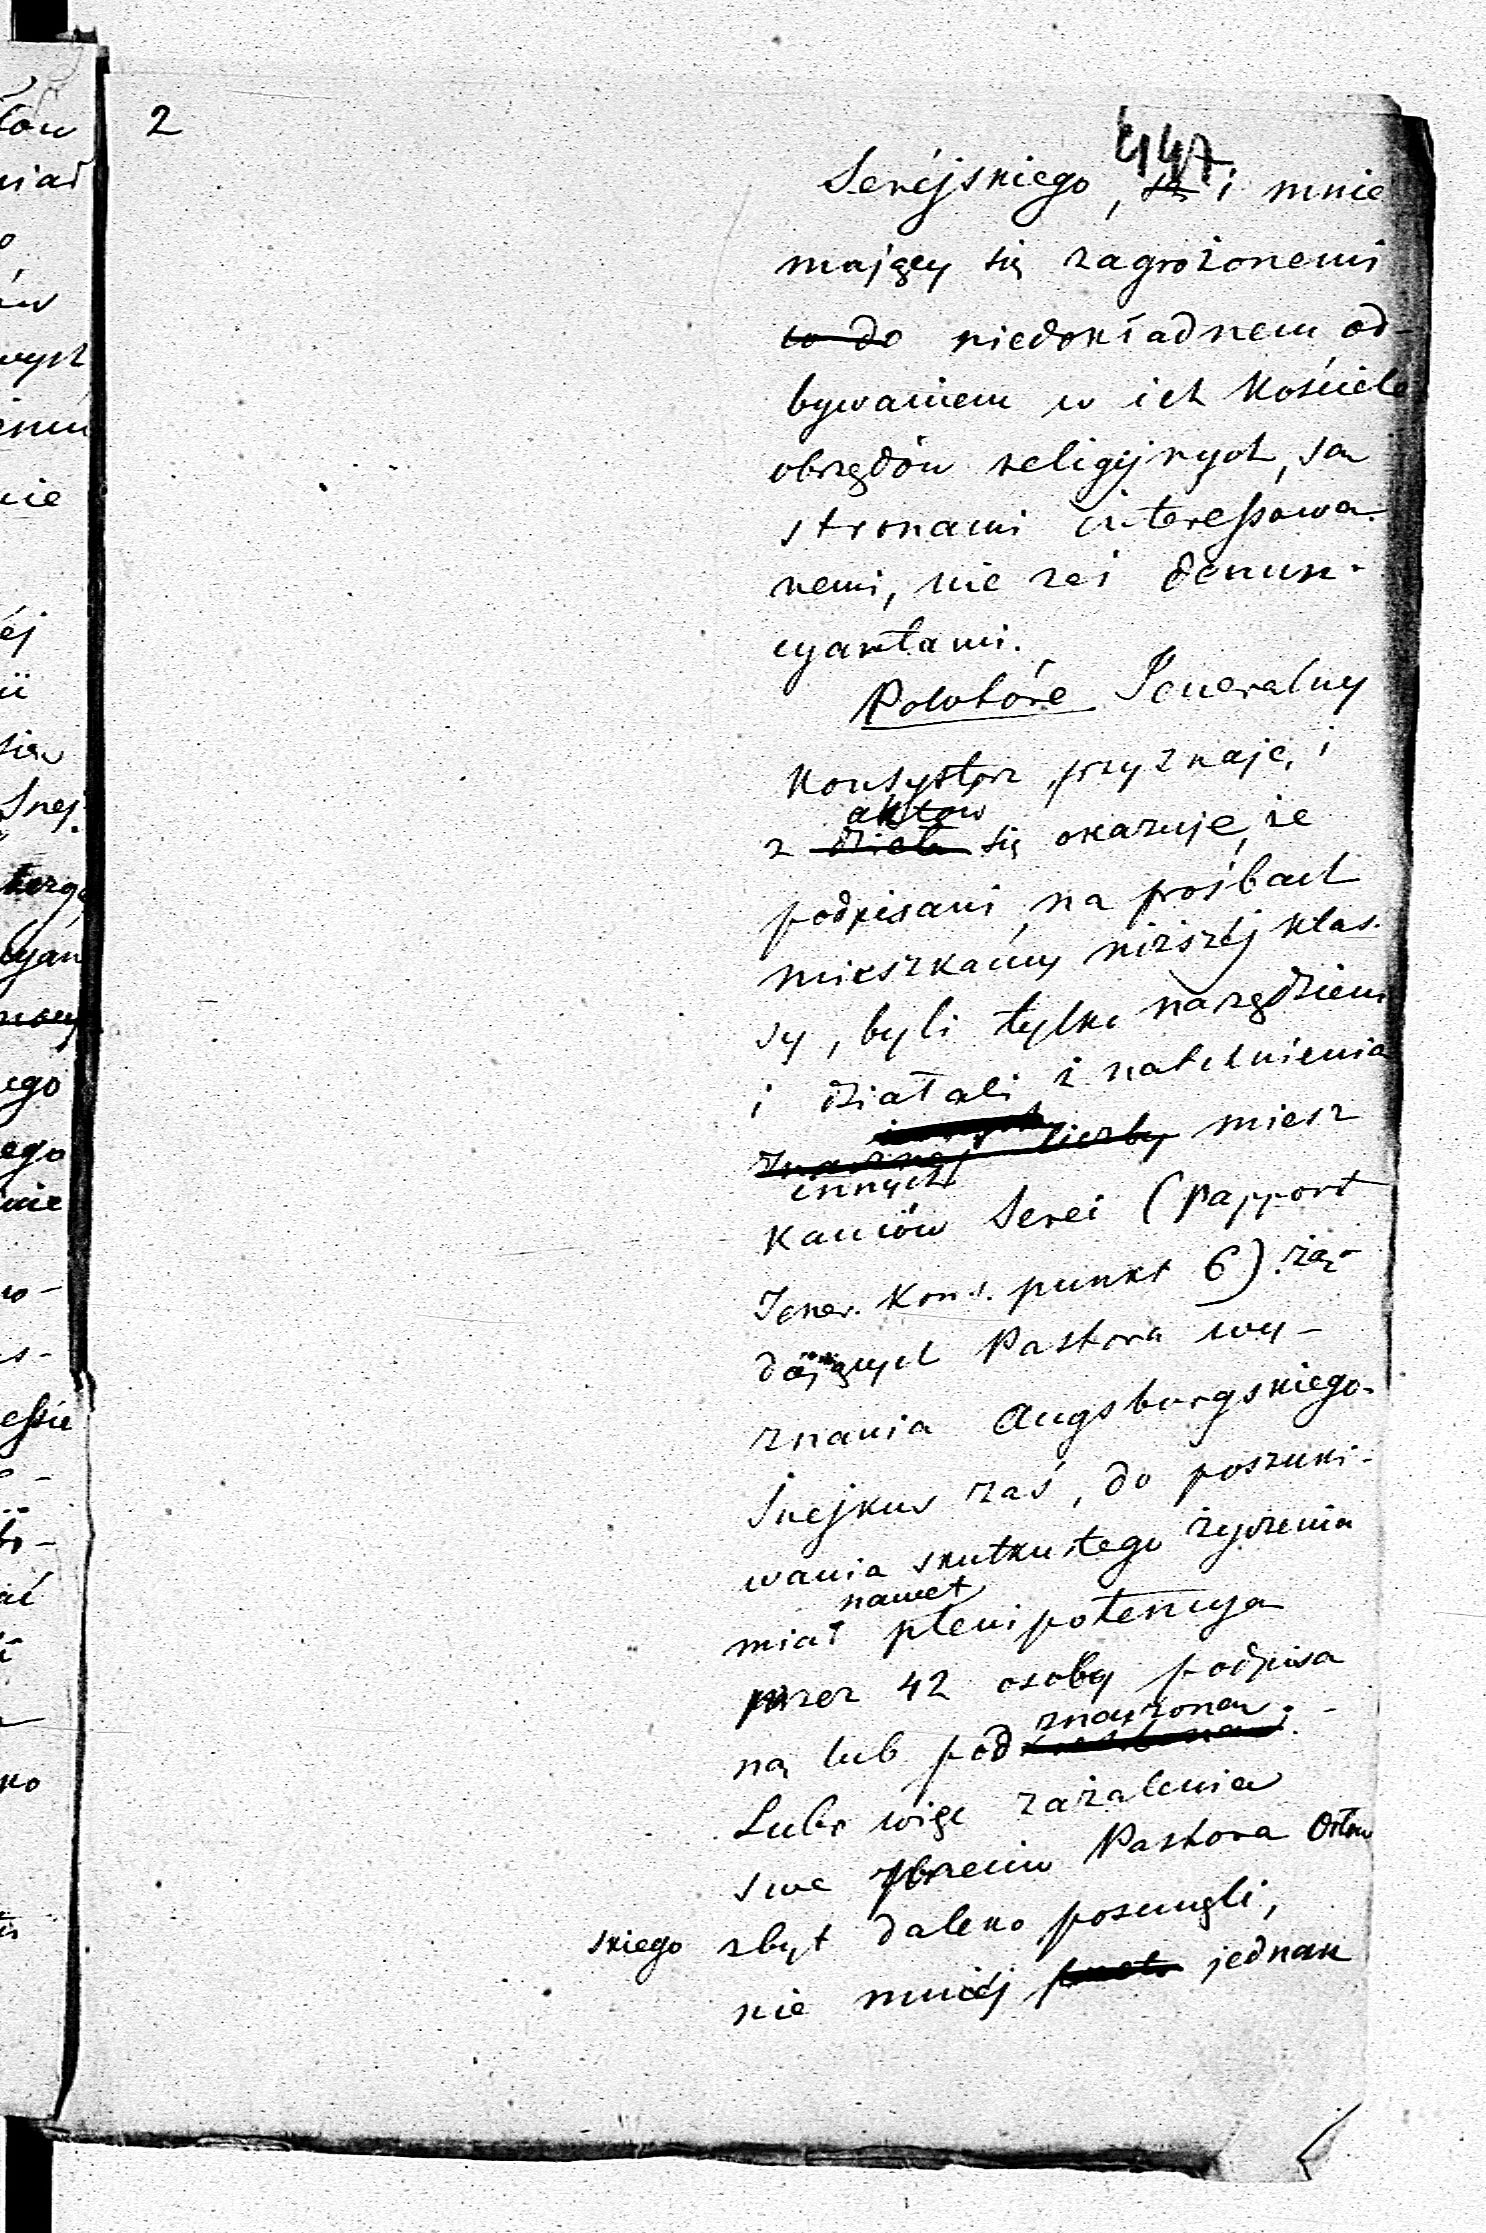 2
447
Serejskiego, są i mnie
mający się zagrożonemi
co do niedokładnem od-
bywaniem w ich Kościele
obrzędów religijnych, są
stronami interessowa-
nemi, nie zaś denun-
cyantami.
Powtóre Jeneralny
Konsystorz przyznaje, i
aktów
z dzieła się okazuje, że
podpisani na prośbach
mieszkańcy niższej klas-
sy, byli tylko narzędziem
i działali z natchnienia
znacznej liczby miesz
innych
kańców Serei (Rapport
Jener. Kons. punkt 6). żą-
dających Pastora wy-
znania Augsburgskiego.
Snejkus zaś, do poszuki-
wania skutku tego życzenia
nawet
miał plenipotencya
przez 42 osoby podpisa
znaczoną
ną lub pod
Lubo więc zażalenia
swe przeciw Pastora Orłow
skiego zbyt daleko posunęli,
nie mniéj jednak